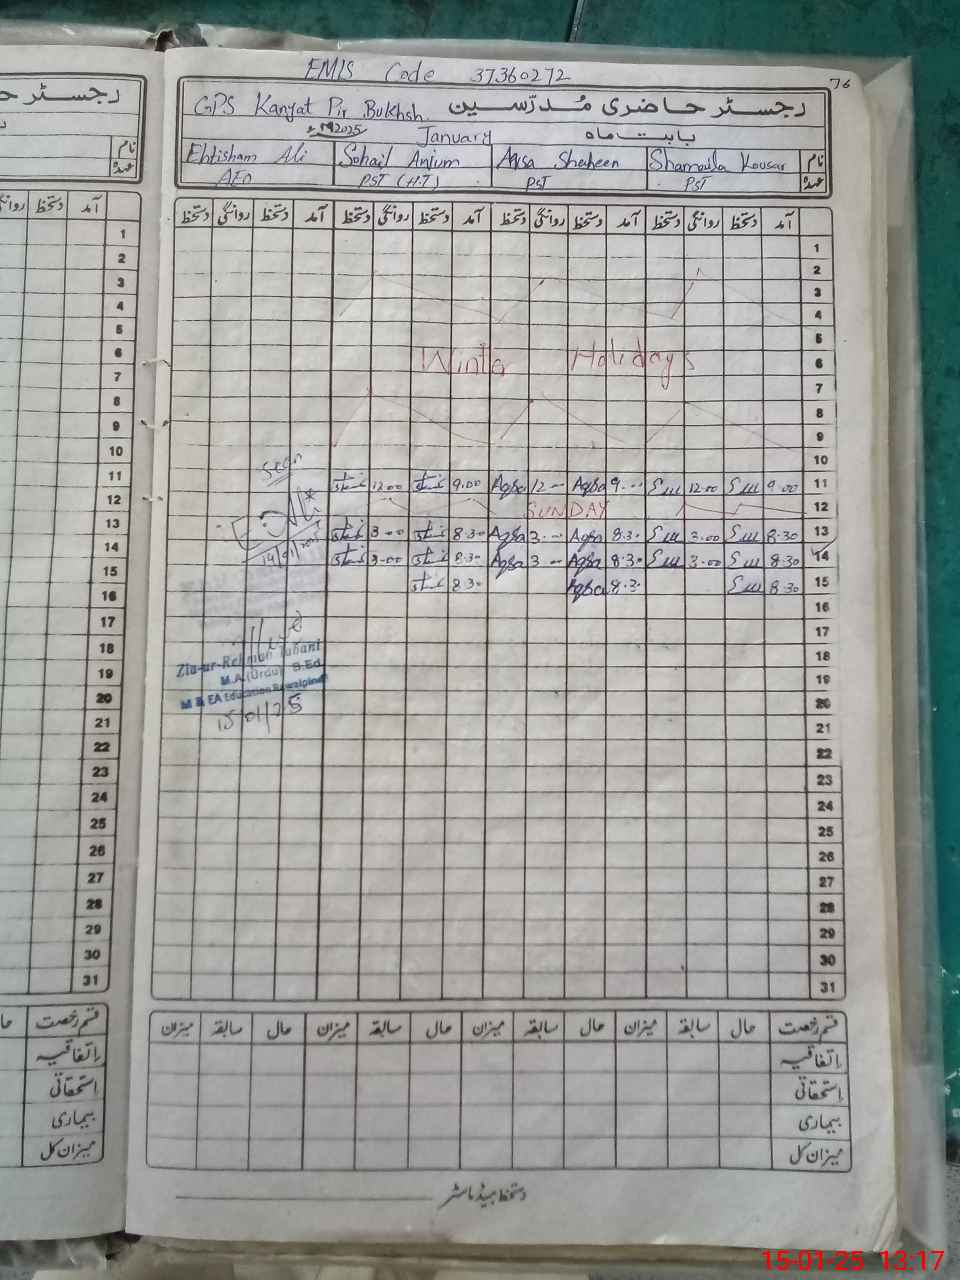 EMIS Code 37360272
76
رجسٹر حاضری مُدرّسین
GPS Kanyat Pir Bukhsh
بابت ماہ January 2025
نام Shamaila Kousar Aqsa Shaheen Sohail Anjum Ehtisham Ali
عہدہ PST PST PST (H.T) AEO
آمد دستخط روانگی دستخط آمد دستخط روانگی دستخط آمد دستخط روانگی دستخط آمد دستخط روانگی دستخط
1
2
3
4
5
6 Winter Holidays
7
8
9
10
11 9.00 12.00 9.00 Aqsa 12 Aqsa 9.00 12.00
12 SUNDAY
13 8.30 3.00 8.30 Aqsa 3.00 Aqsa 8.30 3.00
14 8.30 3.00 8.30 Aqsa 3.00 Aqsa 8.30 3.00
15 8.30 Aqsa 8.30 8.30
16
17
18
19
20
21
22
23
24
25
26
27
28
29
30
31
Seen
14/01/2025
Zia-ur-Rehman
M.A.(Urdu) B.Ed.
M & EA Education Rawalpindi
15/01/25
قسم رخصت حال سابقہ میزان حال سابقہ میزان حال سابقہ میزان حال سابقہ میزان
اتفاقیہ
استحقاقی
بیماری
میزان کل
دستخط ہیڈ ماسٹر
رجسٹر
نام
عہدہ
آمد دستخط روانگی
1
2
3
4
5
6
7
8
9
10
11
12
13
14
15
16
17
18
19
20
21
22
23
24
25
26
27
28
29
30
31
قسم رخصت
اتفاقیہ
استحقاقی
بیماری
میزان کل
15-01-25 13:17